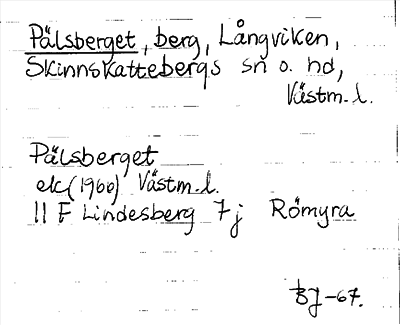 Pälsberget, berg, Långviken,
Skinnskattebergs sn o. hd,
Västm. l.
Pälsberget
ek (1966) Västm. l.
11 F Lindesberg 7j Römyra
BJ-67.